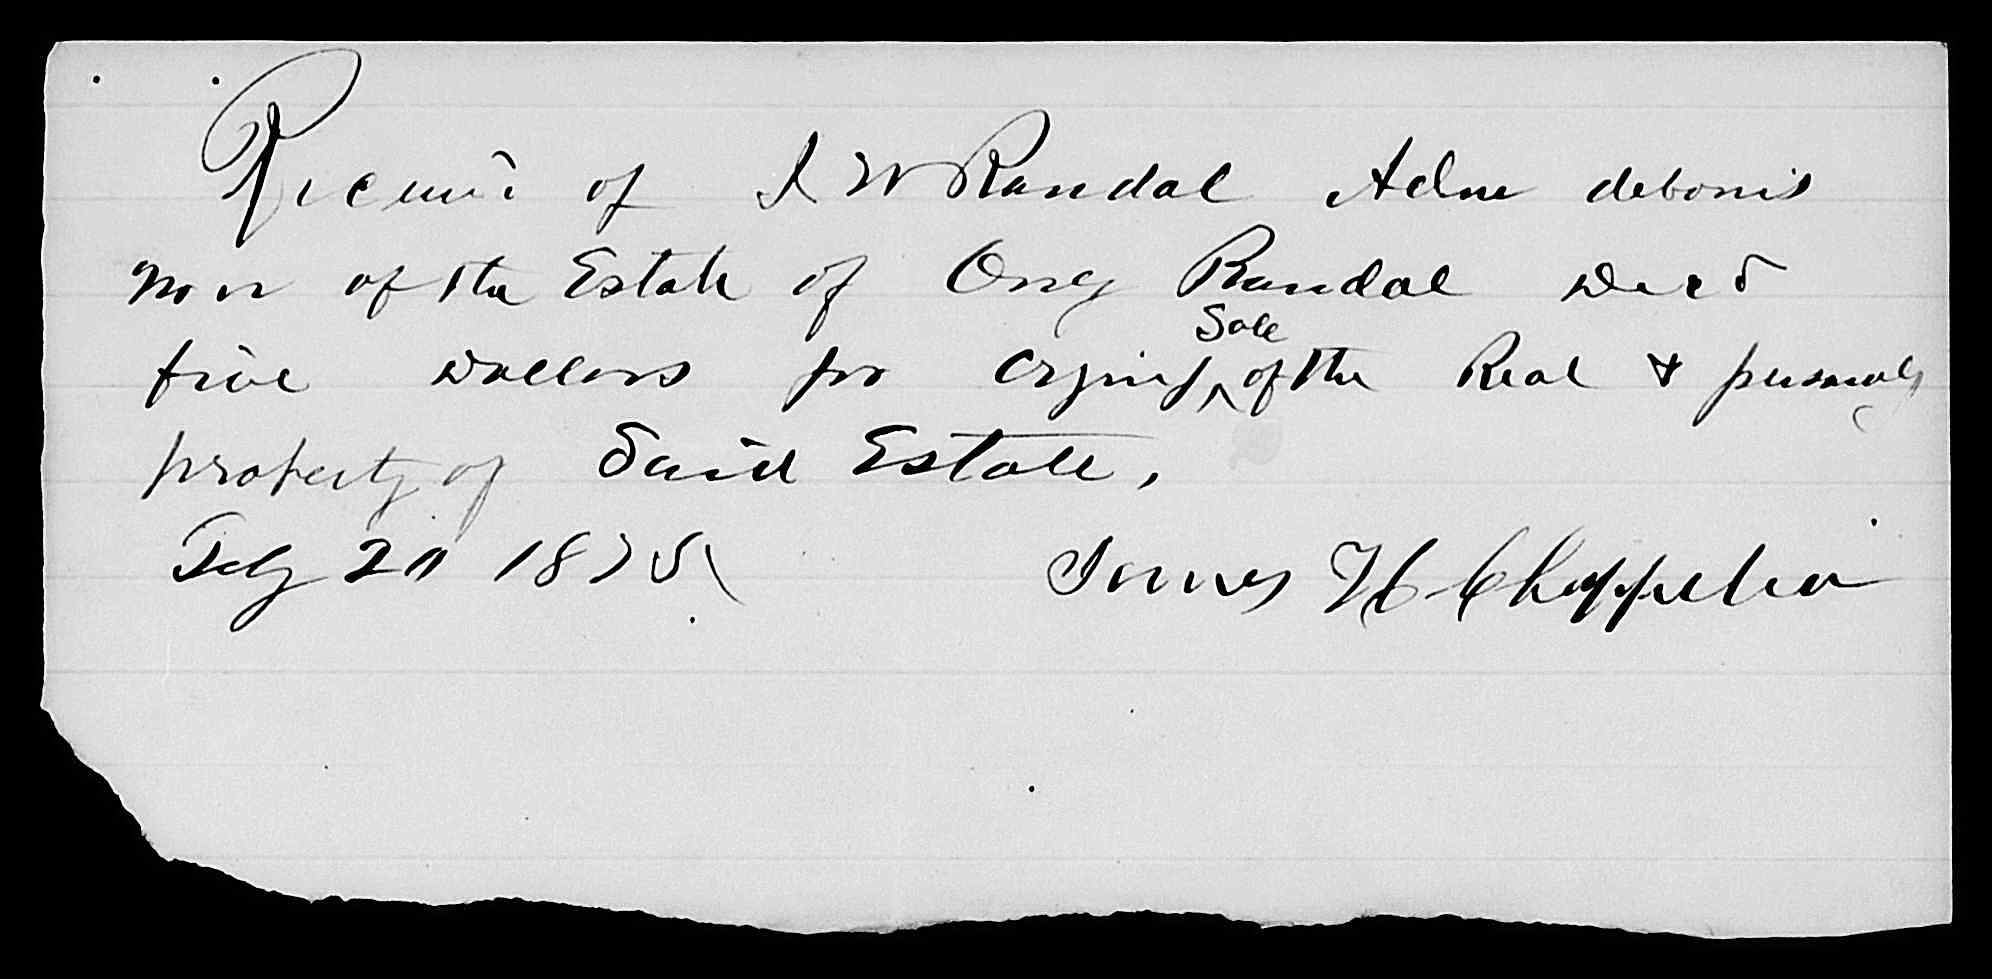 Receivd of J W Randal Adm debonis
non of the Estate of Randal Decd
five Dollars for Crying Sale of the Real & personaly
property of Said Estate,
Feby 20 1875
James H Chappelear